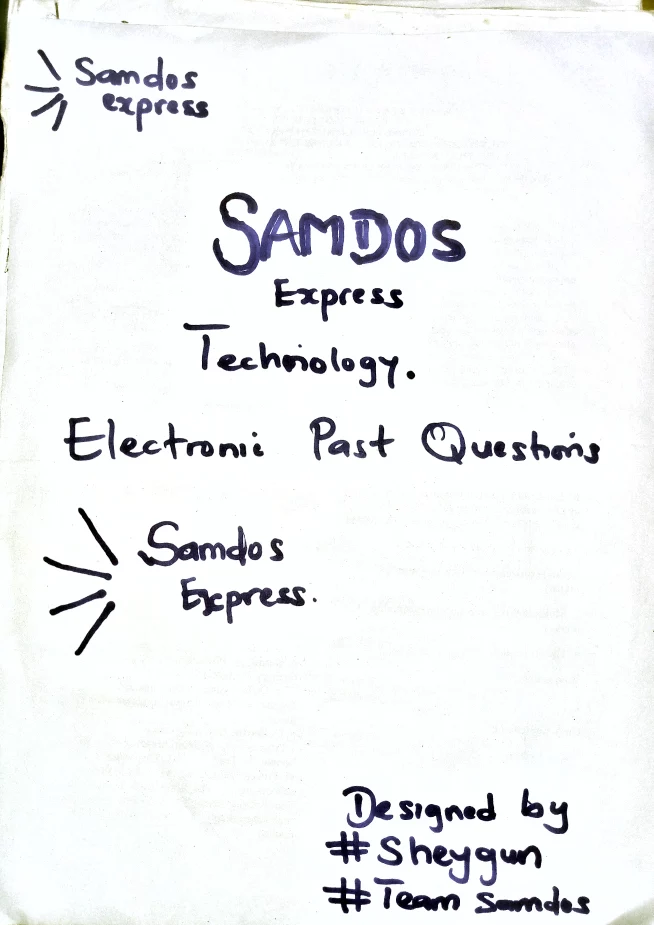 Samdos
express
SAMDOS
Express
Technology.
Electronic Past Questions
Samdos
Express.
Designed by
#Sheygun
#Team samdos